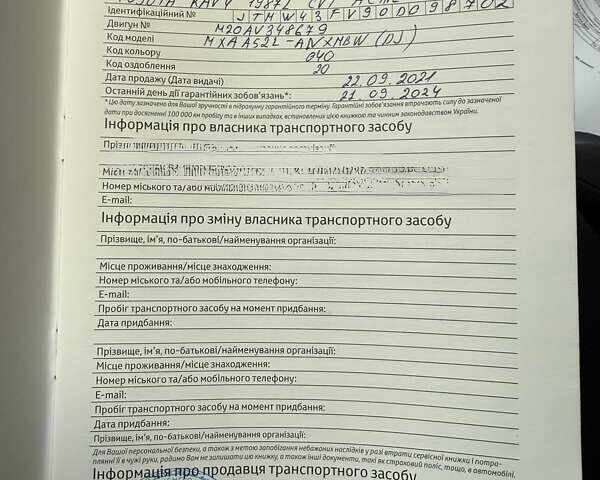 Ідентифікаційний № JTMW43FV90D098702
Двигун № M20AV348679
Код моделі MXAA52L-ANXMBW (DJ)
Код кольору 040
Код оздоблення 20
Дата продажу (Дата видачі) 22.09.2021
Останній день дії гарантійних зобов'язань*: 21.09.2024
* Цю дату зазначено для Вашої зручності в підрахунку гарантійного терміну. Гарантійні зобов'язання втрачають силу до зазначеної
дати при досягненні 100 000 км пробігу та в інших випадках, встановлених цією книжкою та чинним законодавством України.
Інформація про власника транспортного засобу
Номер міського та/або
E-mail:
Інформація про зміну власника транспортного засобу
Прізвище, ім'я, по-батькові/найменування організації:
Місце проживання/місце знаходження:
Номер міського та/або мобільного телефону:
E-mail:
Пробіг транспортного засобу на момент придбання:
Дата придбання:
Прізвище, ім'я, по-батькові/найменування організації:
Місце проживання/місце знаходження:
Номер міського та/або мобільного телефону:
E-mail:
Пробіг транспортного засобу на момент придбання:
Дата придбання:
Прізвище, ім'я, по-батькові/найменування організації:
Для Вашої персональної безпеки, а також з метою запобігання небажаних наслідків у разі втрати сервісної книжки і потра-
плянні її в чужі руки, радимо Вам не залишати цю книжку, а також інші документи, такі як страховий поліс, тощо, в автомобілі.
Інформація про продавця транспортного засобу